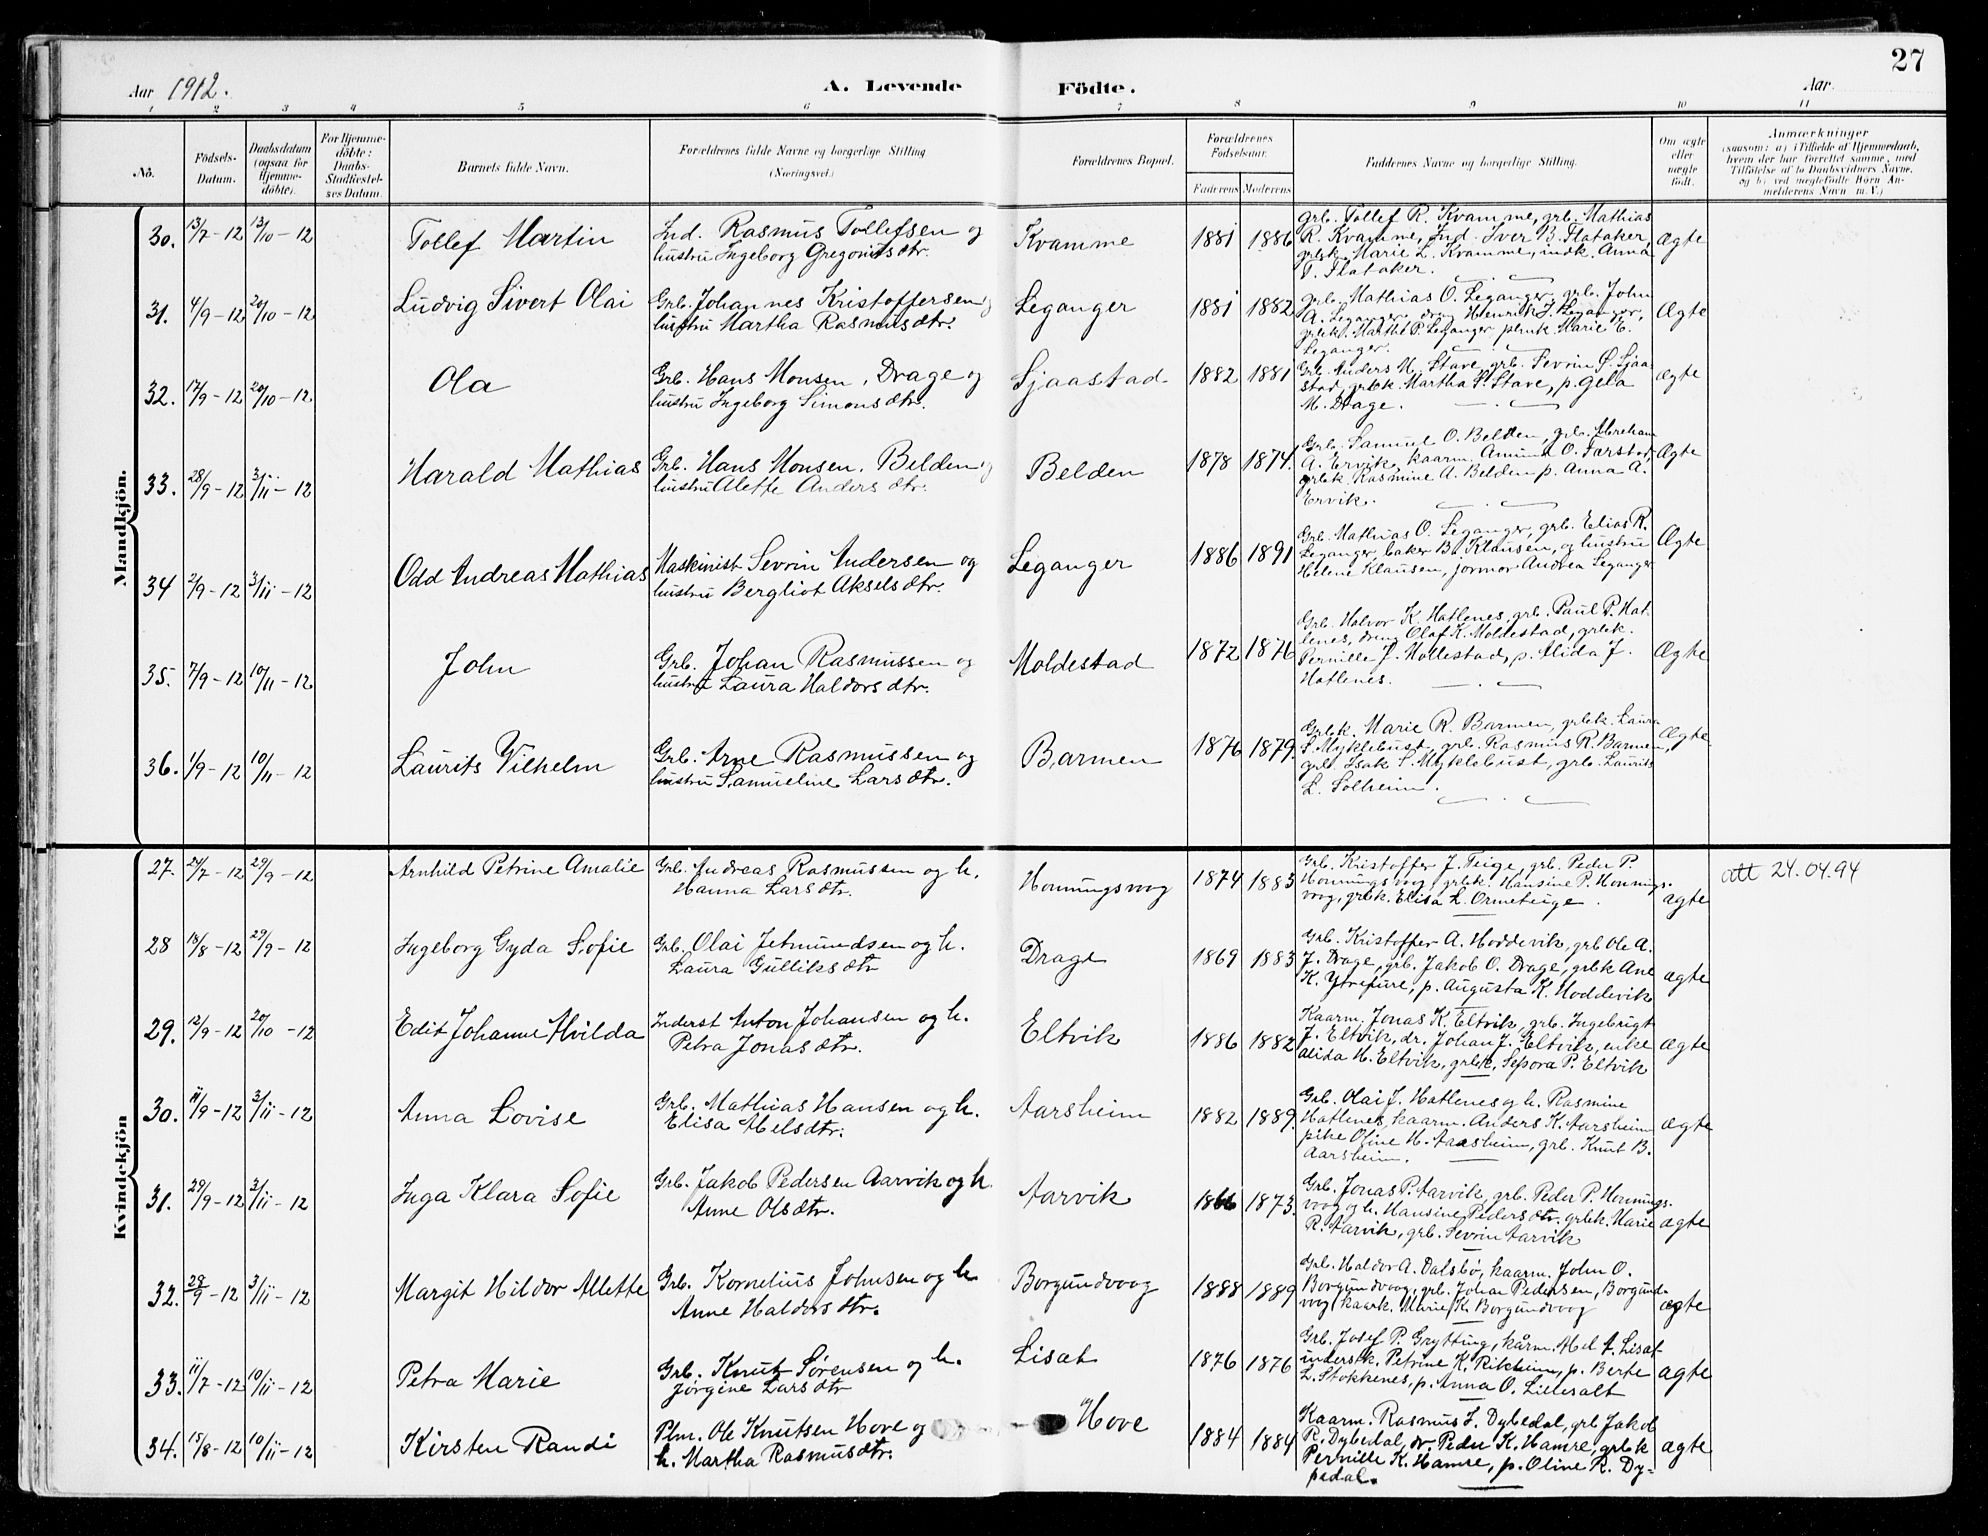 27
Aar 1912.
A. Levende Födte.
Aar
1 2 3 4 5 6 7 8 9 10 11
No.
Födsels-
Datum.
Daabsdatum
(ogsaa for
Hjemme-
döbte).
For Hjemme-
döbte:
Daabs-
Stadfæstel-
ses Datum.
Barnets fulde Navn.
Forældrenes fulde Navne og borgerlige Stilling
(Næringsvei.)
Forældrenes Bopæl.
Forældrenes
Födselsaar.
Faderens Moderens
Faddernes Navne og borgerlige Stilling.
Om ægte
eller
uægte
født.
Anmærkninger
(saasom: a) i Tilfælde af Hjemmedaab,
hvem der har forrettet samme, med
Tilföielse af to Daabsvidners Navne,
og b) ved uægtefödte Börn An-
melderens Navn m. V.)
Mandkjön.
30. 13/7-12 13/10-12 Tollef Martin
Ind. Rasmus Tollefsen og
hustru Ingeborg Gregoriusdtr.
Kvamme 1881 1886
Grb. Tollef R. Kvamme, grb. Mathias
R. Kvamme, Ind. Iver B. Flataker,
grbk. Marie L. Kvamme, indk. Anna
T. Flataker.
Ægte
31. 4/9-12 20/10-12 Ludvig Sivert Olai
Grb. Johannes Kristoffersen og
hustru Martha Rasmusdtr.
Leganger 1881 1882
grb. Mathias O. Leganger, grb. John
A. Leganger, dreng Henrik J. Leganger,
grbk. Marthe P. Leganger Marie E.
Leganger.
Ægte
32. 17/9-12 20/10-12 Ola
Grb. Hans Monsen, Drage og
hustru Ingeborg Simonsdtr.
Sjaastad 1882 1881
Grb. Anders M. Stave, grb. Sevrin O. Sjaa
stad, grbk. Martha P. Stave, p. Gela
M. Drage.
Ægte
33. 28/9-12 3/11-12 Harald Mathias
Grb. Hans Monsen, Belden og
hustru Alette Andersdtr.
Belden 1878 1874.
Grb. Samuel O. Belden, grb. Abraham
A. Ervik, kaarm. Amund O. Farstad,
grbk. Rasmine A. Belden p. Anna A.
Ervik.
Ægte
34 2/9-12 3/11-12 Odd Andreas Mathias
Maskinist Sevrin Andersen og
hustru Bergliot Akselsdtr.
Leganger 1886 1891
Grb. Mathias O. Leganger, grb. Elias R.
Leganger, baker B. Klausen, og hustru
Helene Klausen, jormor Andrea Leganger
Ægte
35. 7/9-12 10/11-12 John
Grb. Johan Rasmussen og
hustru Laura Haldorsdtr.
Moldestad 1872 1876
Grb. Halvor K. Hatlenes, grb. Paul P. Hat-
lenes, dreng Olaf K. Moldestad, grbk.
Pernille J. Mollestad, p. Alida J.
Hatlenes.
Ægte
36. 4/9-12 10/11-12 Laurits Vilhelm
Grb. Arne Rasmussen og
hustru Samueline Larsdtr.
Barmen 1876 1879.
Grbk. Marie R. Barmen, grbk. Laura
S. Myklebust, grb. Rasmus R. Barmen,
grb. Isak S. Myklebust, grb. Laurits
L. Solheim.
Ægte.
Kvindekjön
27. 24/7-12 29/9-12 Arnhild Petrine Amalie
Grb. Andreas Rasmussen og h.
Hanna Larsdtr.
Honningsvog 1874 1883
Grb. Kristoffer J. Teige, grb. Peder P.
Honningsvog, grbk. Hansine P. Honnings-
vog, grbk. Elisa L. Ormeteige.
ægte
att 24.04.94
28 18/8-12 29/9-12 Ingeborg Gyda Sofie
Grb. Olai Jetmundsen og h.
Laura Gulliksdtr
Drage 1869 1883
Grb. Kristoffer A. Hoddevik, grb Ole A.
J. Drage, grb. Jakob O. Drage, grbk Ane
K. Ytrefure, p. Augusta K. Hoddevik
ægte
29. 12/9-12 20/10-12 Edit Johanne Alvilda
Inderst Anton Johansen og h.
Petra Jonasdtr.
Eltvik 1886 1882
Kaarm. Jonas K. Eltvik, grb. Ingebrigt
J. Eltvik, dr. Johan J. Eltvik, enke
Alida H. Eltvik, grbk. Sepora P. Eltvik
ægte
30. 11/9-12 3/11-12 Anna Lovise
Grb. Mathias Hansen og h.
Elisa Abelsdtr.
Aarsheim 1882 1889.
Grb. Olai J. Hatlenes og h. Rasmine
Hatlenes, kaarm. Anders K. Aarsheim
pike Oline H. Aarsheim, grb. Knut B.
Aarsheim.
ægte
31. 29/9-12 3/11-12 Inga Klara Sofie
Grb. Jakob Pedersen Aarvik og h.
Anne Olsdtr.
Aarvik 1866 1873.
Grb. Jonas P. Aarvik, grb. Peder P. Honnings-
vog og h. Hansine Pedersdtr. grbk. Marie
R. Aarvik, grb. Sevrin Aarvik
ægte
32. 28/9-12 3/11-12 Margit Hildor Allette
Grb. Kornelius Johnsen og h.
Anne Haldorsdtr.
Borgundvog 1888 1889
Grb. Haldor A. Dalsbø, kaarm. John O.
Borgundvog, grb. Johan Pedersen, Borgund-
vog, kaark. Marie K. Borgundvog
ægte
33. 11/7-12 10/11-12 Petra Marie
Grb. Knut Sørensen og h.
Jørgine Larsdtr
Lisat 1876 1876
Grb. Josef P. Grytting, kårm. Abel A. Lisat
inderstk. Petrine K. Rikheim, p. Berte
L. Stokkenes, p. Anna O. Lillesalt
ægte
34. 15/8-12 10/11-12 Kirsten Randi
Plm. Ole Knutsen Hove og
h. Martha Rasmusdtr.
Hove 1884 1884
Kaarm. Rasmus L. Dybedal, grb Jakob
R. Dybedal, dr. Peder K. Hamre, grbk
Pernille K. Hamre, p. Oline R. Dy-
bedal.
ægte